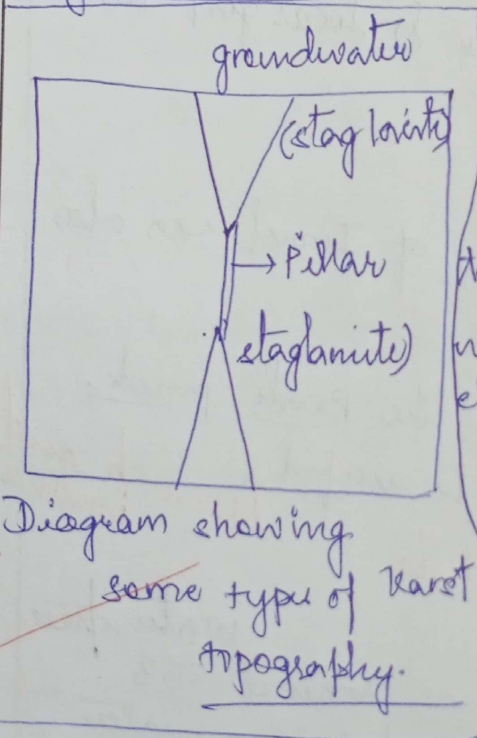 groundwater
(staglovite)
→ Pillar
staglamite)
Diagram showing
some type of Karst
topography.